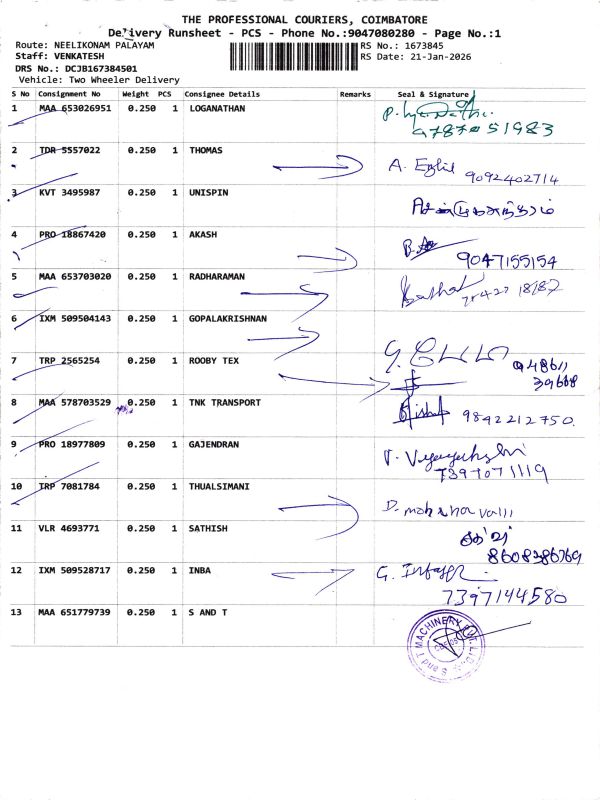 THE PROFESSIONAL COURIERS, COIMBATORE
Delivery Runsheet - PCS - Phone No.:9047080280 - Page No.:1
Route: NEELIKONAM PALAYAM RS No.: 1673845
Staff: VENKATESH RS Date: 21-Jan-2026
DRS No.: DCJB167384501
Vehicle: Two Wheeler Delivery
S No Consignment No Weight PCS Consignee Details Remarks Seal & Signature
1 MAA 653026951 0.250 1 LOGANATHAN
9787051983
2 TDR 5557022 0.250 1 THOMAS
A. Ezhil 9092402714
3 KVT 3495987 0.250 1 UNISPIN
4 PRO 18867420 0.250 1 AKASH
9047155154
5 MAA 653703020 0.250 1 RADHARAMAN
6 IXM 509504143 0.250 1 GOPALAKRISHNAN
7 TRP 2565254 0.250 1 ROOBY TEX
8 MAA 578703529 0.250 1 TNK TRANSPORT
9842212750.
9 PRO 18977809 0.250 1 GAJENDRAN
7397071119
10 TRP 7081784 0.250 1 THUALSIMANI
11 VLR 4693771 0.250 1 SATHISH
8608386769
12 IXM 509528717 0.250 1 INBA
7397144580
13 MAA 651779739 0.250 1 S AND T